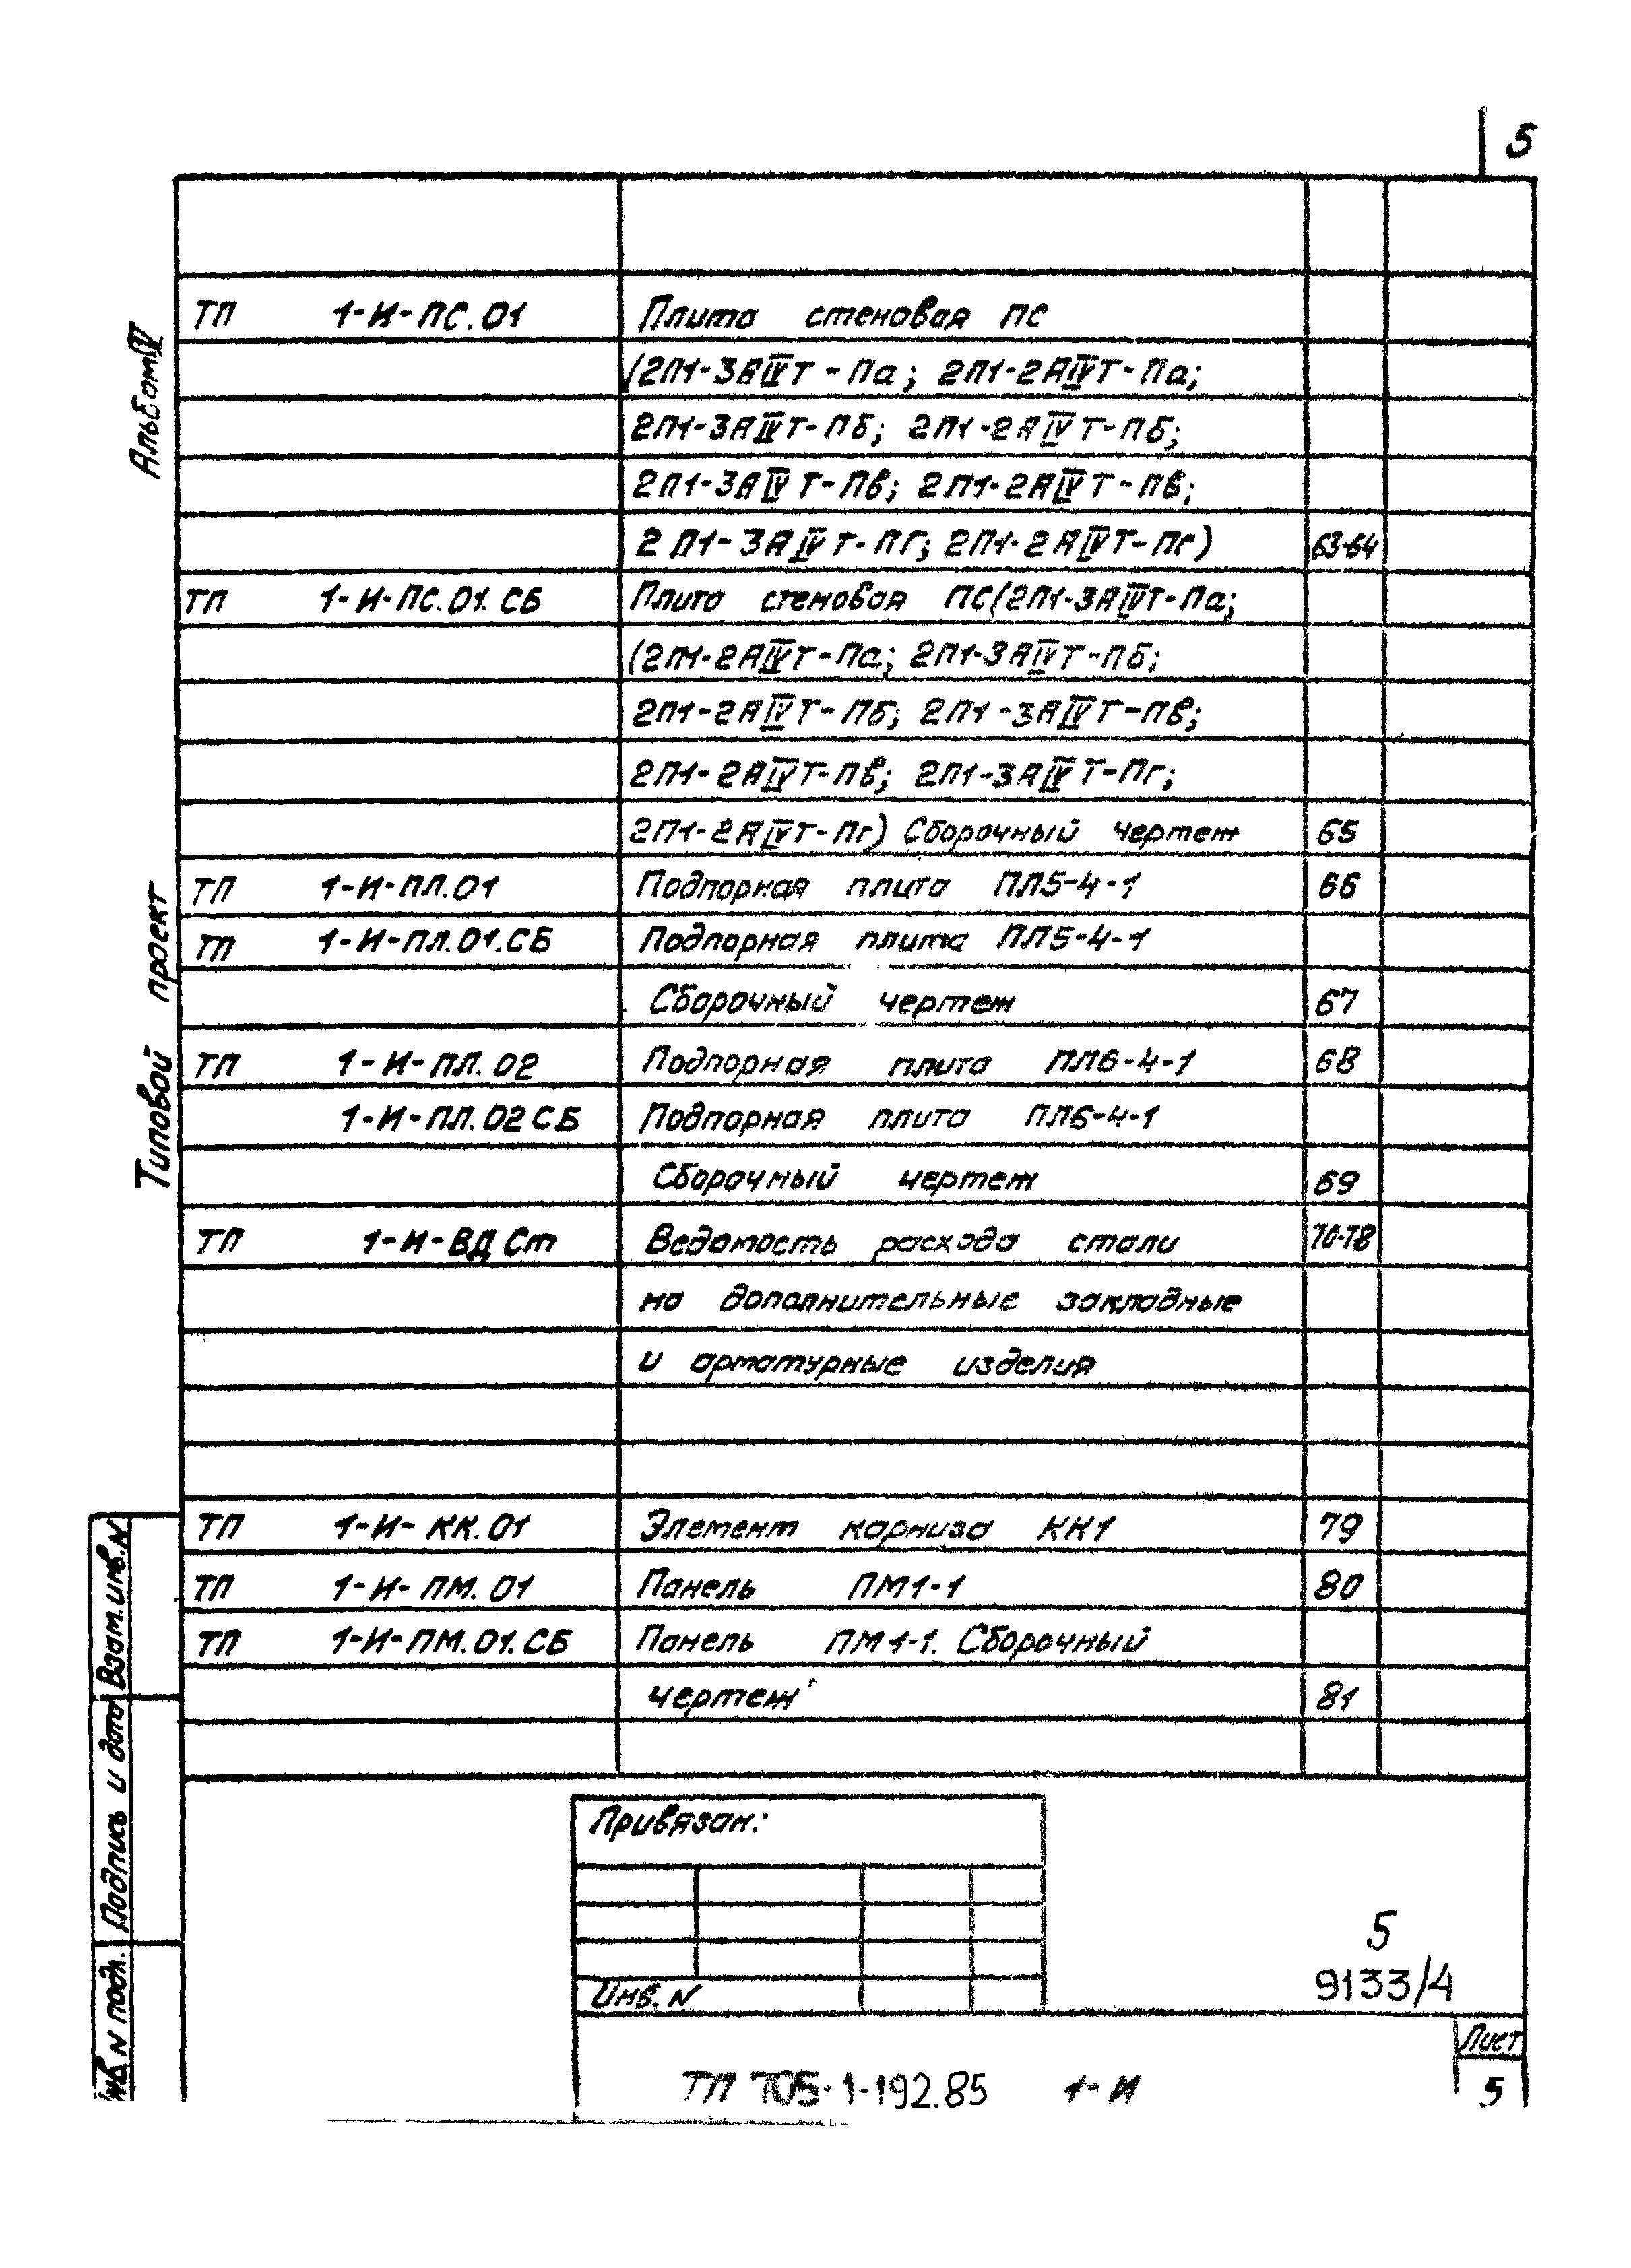 5
ТП 1-И-ПС.01 Плита стеновая ПС
(2П1-3АIVТ-Па; 2П1-2АIVТ-Па;
2П1-3АIVТ-Пб; 2П1-2АIVТ-Пб;
2П1-3АIVТ-Пв; 2П1-2АIVТ-Пв;
2П1-3АIVТ-Пг; 2П1-2АIVТ-Пг) 63-64
ТП 1-И-ПС.01.СБ Плита стеновая ПС(2П1-3АIVТ-Па;
(2П1-2АIVТ-Па; 2П1-3АIVТ-Пб;
2П1-2АIVТ-Пб; 2П1-3АIVТ-Пв;
2П1-2АIVТ-Пв; 2П1-3АIVТ-Пг;
2П1-2АIVТ-Пг) Сборочный чертеж 65
ТП 1-И-ПЛ.01 Подпорная плита ПЛ5-4-1 66
ТП 1-И-ПЛ.01.СБ Подпорная плита ПЛ5-4-1
Сборочный чертеж 67
ТП 1-И-ПЛ.02 Подпорная плита ПЛ6-4-1 68
1-И-ПЛ.02СБ Подпорная плита ПЛ6-4-1
Сборочный чертеж 69
ТП 1-И-ВД Ст Ведомость расхода стали 70-78
на дополнительные закладные
и арматурные изделия
ТП 1-И-КК.01 Элемент карниза КК1 79
ТП 1-И-ПМ.01 Панель ПМ1-1 80
ТП 1-И-ПМ.01.СБ Панель ПМ1-1. Сборочный
чертеж 81
Альбом IV
Типовой проект
Взам.инв.N
Подпись и дата
Инв. N подл.
Привязан:
Инв. N
5
9133/4
ТП 705-1-192.85 1-И
Лист
5